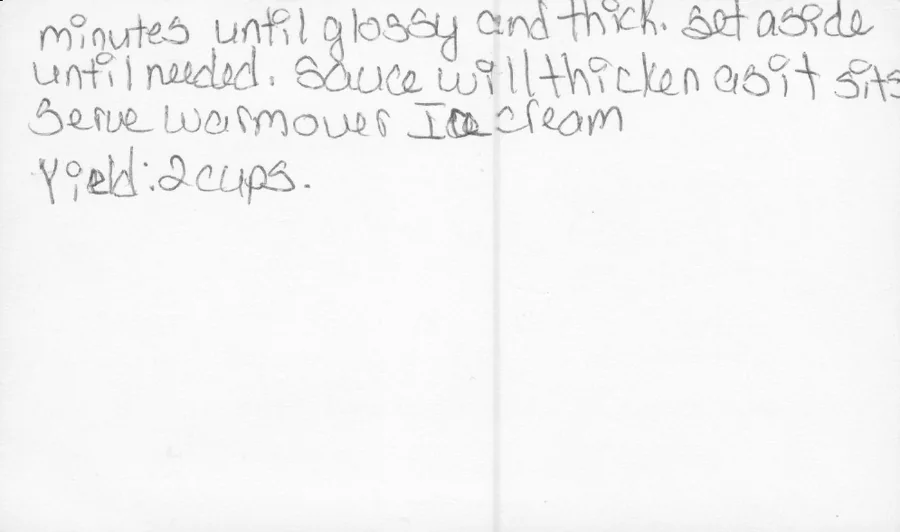 minutes until glossy and thick. Set aside
until needed. Sauce will thicken as it sits
Serve warm over Ice cream
Yield: 2 cups.